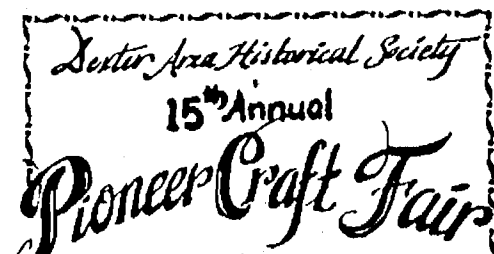 Dexter Area Historical Society
15th Annual
Pioneer Craft Fair